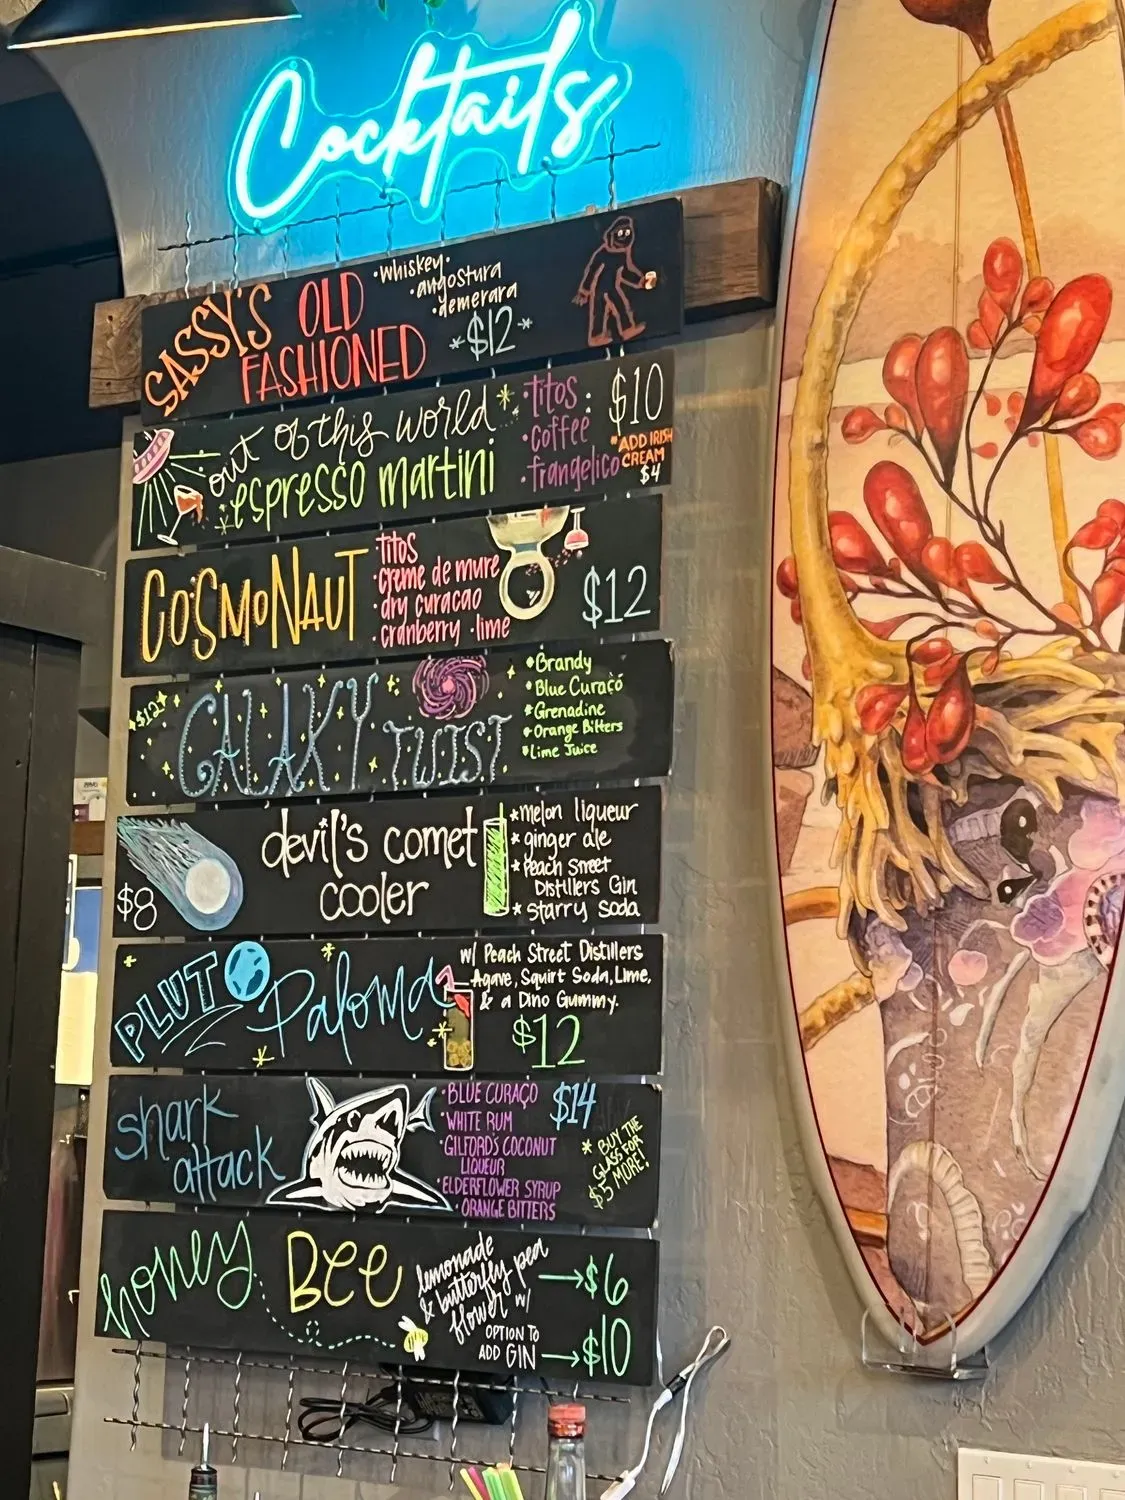 Cocktails
SASSY'S OLD
FASHIONED
•Whiskey•
•angostura
•demerara
*$12*
out of this world
espresso martini
•titos
•coffee
•frangelico
$10
*ADD IRISH
CREAM
$4
COSMONAUT
titos
•creme de mure
•dry curacao
•cranberry •lime
$12
$12
GALAXY TWIST
•Brandy
•Blue Curaçó
•Grenadine
•Orange Bitters
•Lime Juice
$8
devil's comet
cooler
*melon liqueur
*ginger ale
*Peach Street
Distillers Gin
*Starry Soda
PLUTO Paloma
w/ Peach Street Distillers
Agave, Squirt Soda, Lime,
& a Dino Gummy.
$12
shark
attack
•BLUE CURAÇO
•WHITE RUM
•GILFORD'S COCONUT
LIQUEUR
•ELDERFLOWER SYRUP
•ORANGE BITTERS
$14
* BUY THE
GLASS FOR
$5 MORE!
honey BEE
lemonade
& butterfly pea
flower w/
OPTION TO
ADD GIN
→$6
→$10